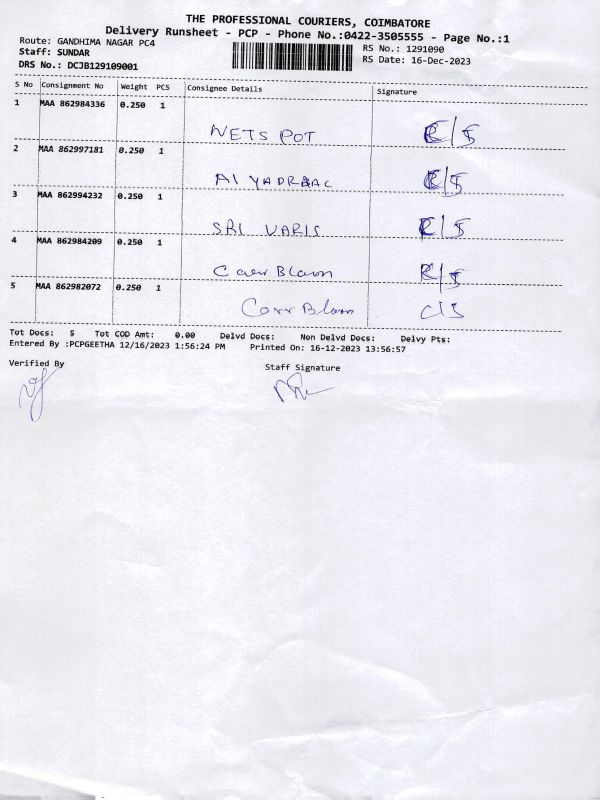 THE PROFESSIONAL COURIERS, COIMBATORE
Delivery Runsheet - PCP - Phone No.:0422-3505555 - Page No.:1
Route: GANDHIMA NAGAR PC4
RS No.: 1291090
Staff: SUNDAR
RS Date: 16-Dec-2023
DRS No.: DCJB129109001
S No Consignment No Weight PCS Consignee Details Signature
1 MAA 862984336 0.250 1
NETS POT
2 MAA 862997181 0.250 1
3 MAA 862994232 0.250 1
SRI VARIS
4 MAA 862984209 0.250 1
5 MAA 862982072 0.250 1
C/S
Tot Docs: 5 Tot COD Amt: 0.00 Delvd Docs: Non Delvd Docs: Delvy Pts:
Entered By :PCPGEETHA 12/16/2023 1:56:24 PM Printed On: 16-12-2023 13:56:57
Verified By
Staff Signature